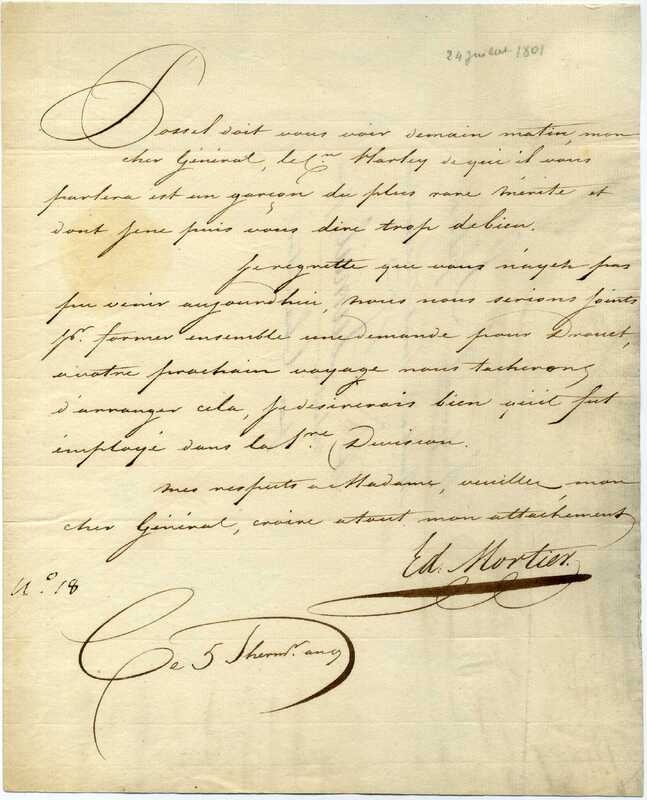 24 Juillet 1801
Dossel doit vous voir demain matin, mon
cher Général, le Cen Harley de qui il vous
parlera est un garçon du plus rare mérite et
dont Jene puis vous dire trop debien.
Jeregrette que vous n'ayez pas
pu venir aujourdhui, nous nous serions joints
pr. former ensemble unedemande pour Drouet,
avotre prochain voyage nous tacherons
d'arranger cela, Jedésirerais bien qu'il fut
employé dans la 1re. Division.
mes respects a Madame, veuillez, mon
cher Général, croire atout mon attachement
Ed. Mortier.
N.o 18
Ce 5 thermr. an 9